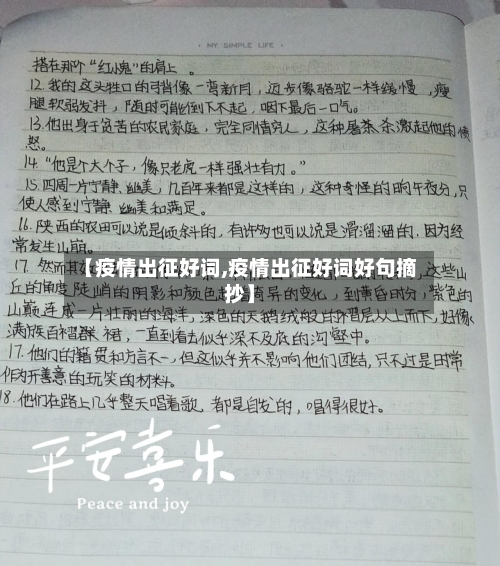 · MY SIMPLE LIFE ·
搭在那个“红小鬼”的肩上。
12.我的这头牲口的背脊像一弯新月，迈步像骆驼一样缓慢，瘦
腿软弱发抖，随时可能倒下不起，咽下最后一口气。
13.他出身于贫苦的农民家庭，完全同情穷人，这种屠杀激起他的愤
怒。
14.“他是个大个子，像只老虎一样强壮有力。”
15.四周一片宁静幽美，几百年来都是这样的，这种奇怪的晌午夜分，只
使人感到宁静幽美和满足。
16.陕西的农田可以说是倾斜的，有许多也可以说是滑溜溜的，因为经
常发生山崩。
【疫情出征好词,疫情出征好词好句摘
抄】
17.然而其
这些山
丘的角度陡峭的阴影和颜色起着奇异的变化，到黄昏时分，紫色的
山巅连成一片壮丽的海洋，深色的天鹅绒般的褶层从上而下，好像
满族百褶裙，一直到看去似乎深不及底的沟壑中。
17.他们的籍贯和方言不一，但这似乎并不影响他们团结，只不过是日常
作为开善意的玩笑的材料。
18.他们在路上几乎整天唱着歌，都是自发的，唱得很好。
平安喜乐
Peace and joy